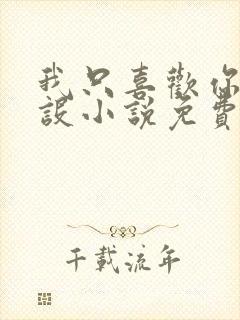 我只喜歡你
設小說免費
千載流年